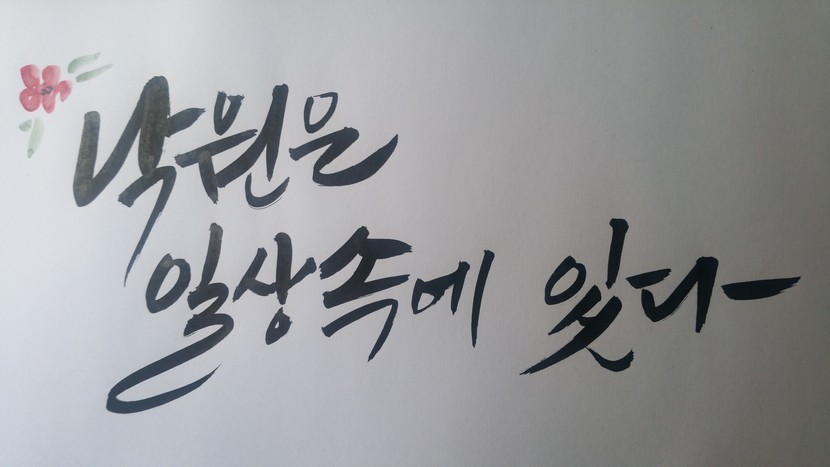 낙원은
일상속에 있다